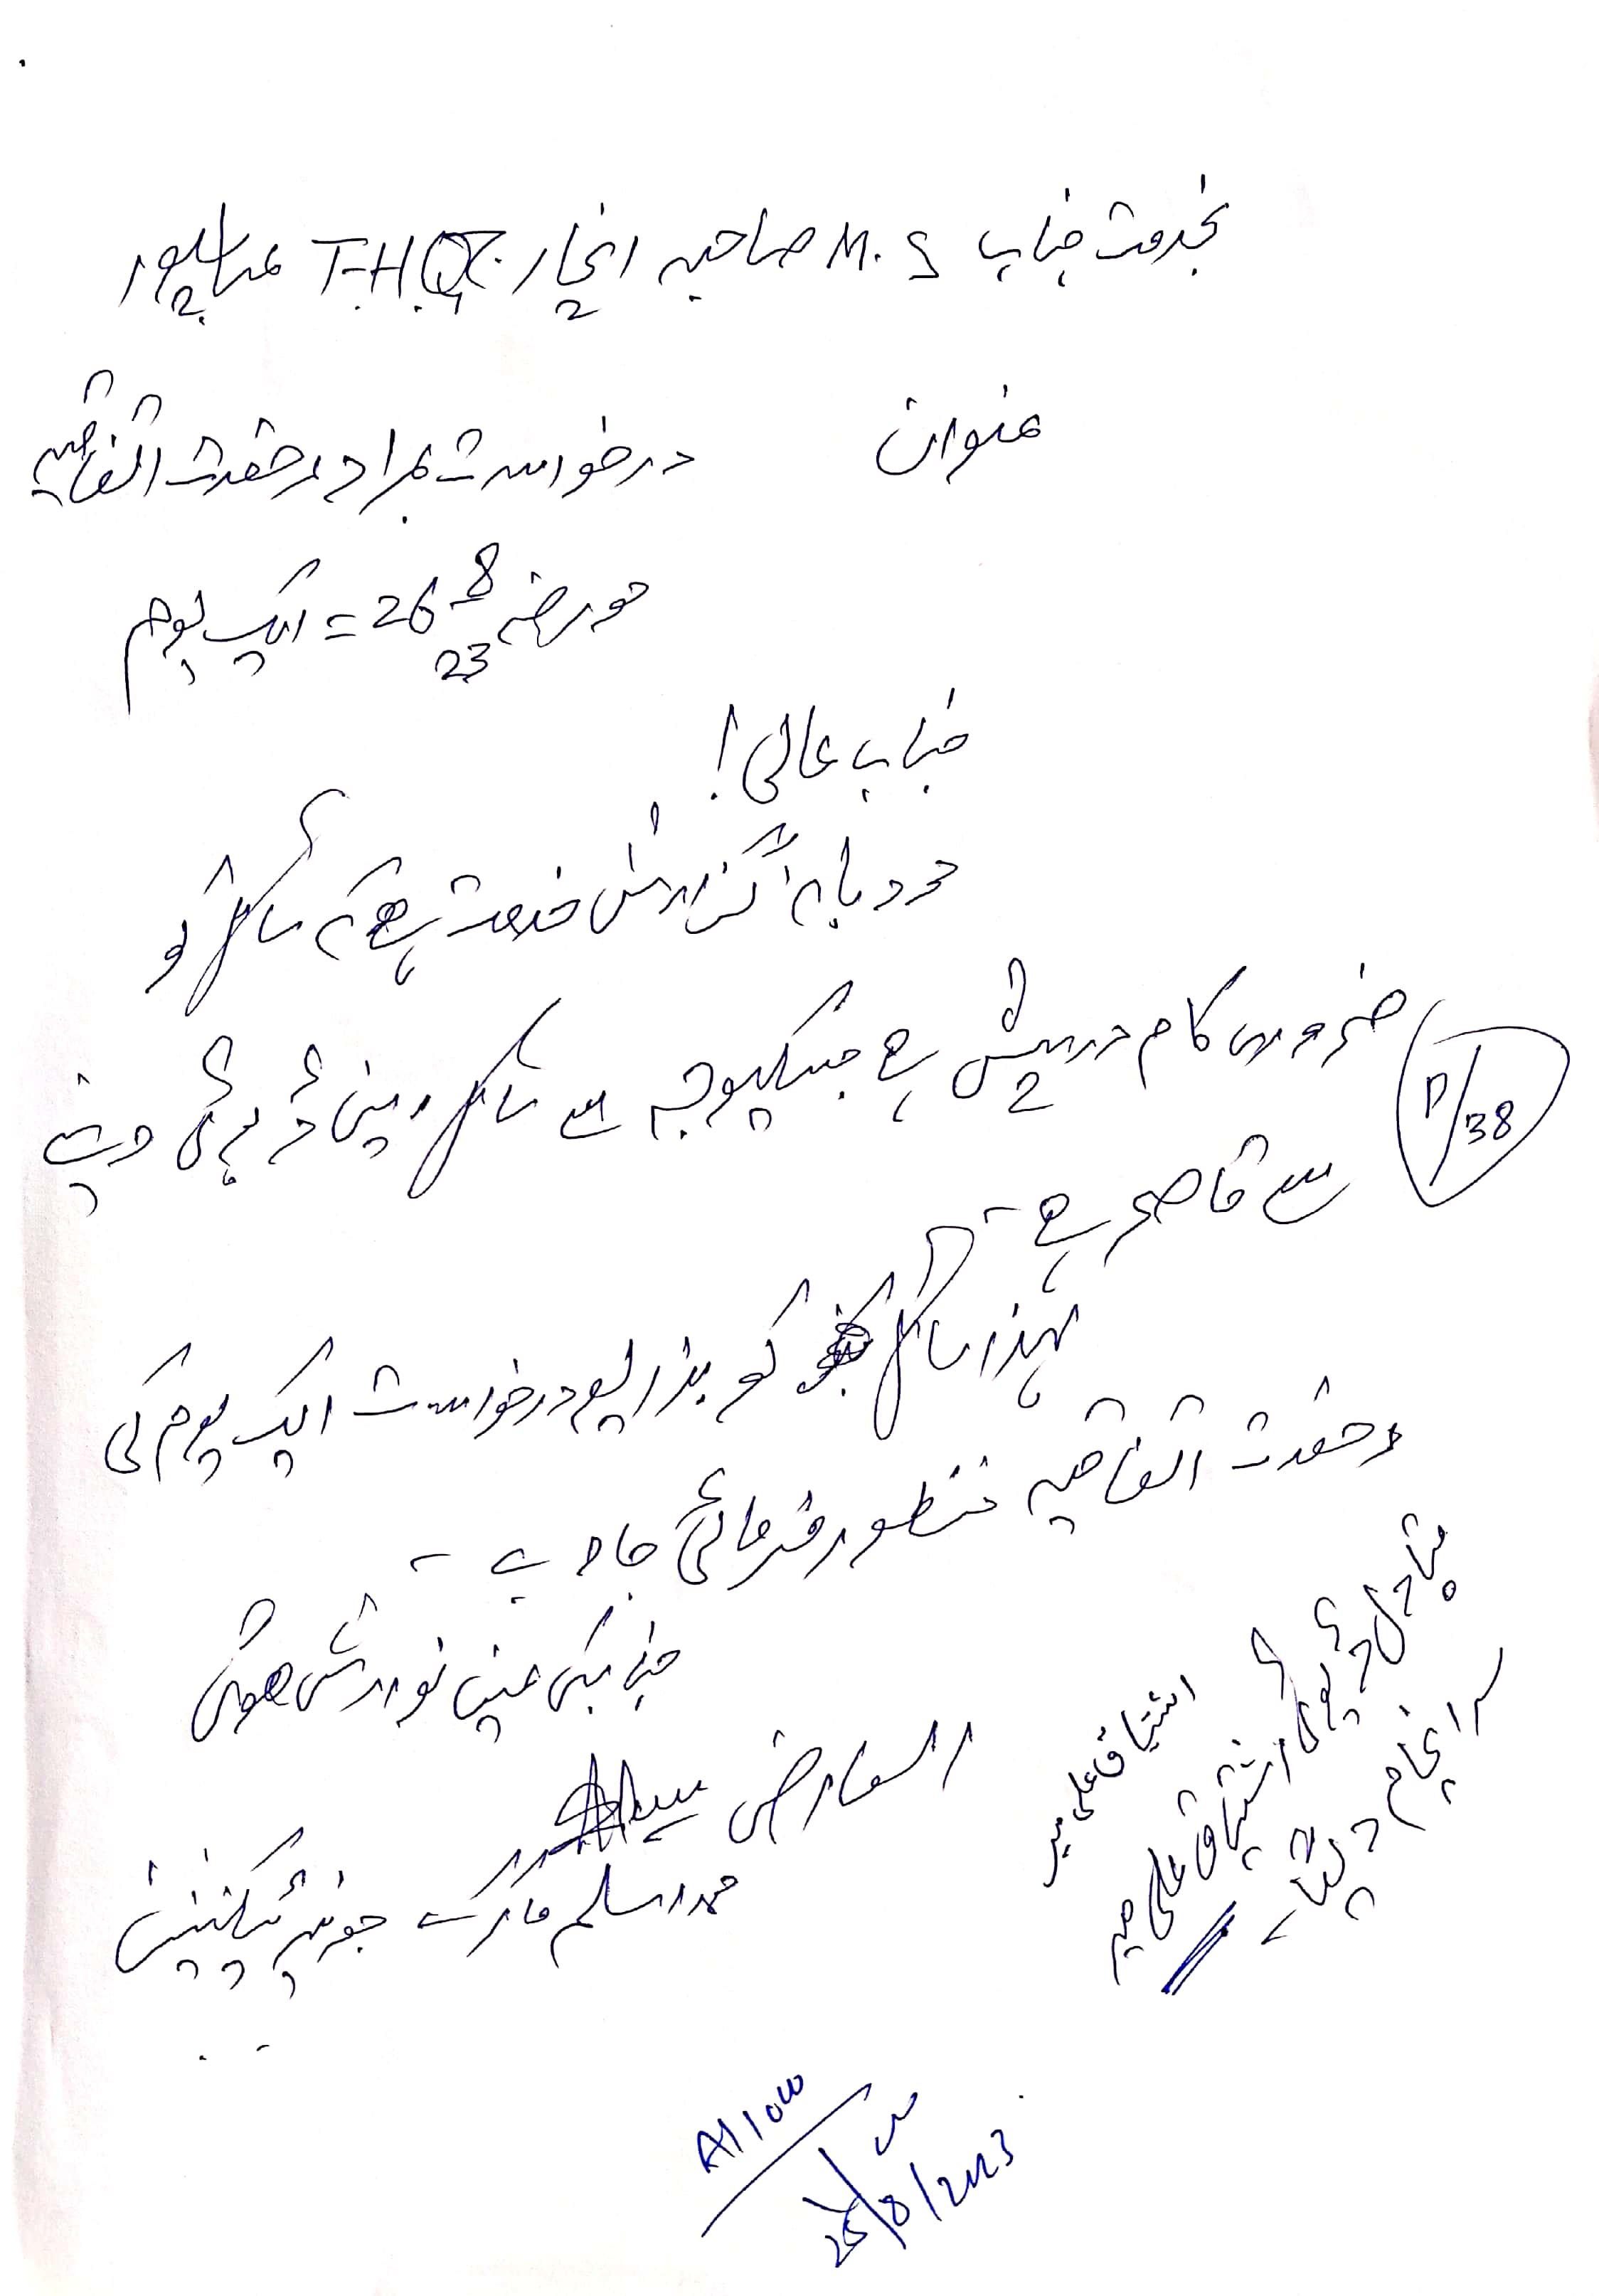 بخدمت جناب M.S صاحبہ انچارج T.H.Q عباسپور
عنوان
درخواست بمراد رخصت اتفاقیہ
مورخہ 26-8-23 = ایک یوم
جناب عالی!
مودبانہ گزارش خدمت ہے کہ سائل کو
ضروری کام درپیش ہے جسکیوجہ سے سائل اپنی ڈیوٹی دینے
سے قاصر ہے۔
P/38
لہذا سائل کو بذریعہ درخواست ایک یوم کی
رخصت اتفاقیہ منظور فرمائی جاوے۔
جنابکی عین نوازش ہوگی
العارض
محمد اسلم جونیئر ٹیکنیشن
اشتیاق علی میر
متبادل ڈیوٹی اشتیاق علی میر
سرانجام دینگے
Allow
25/8/2023